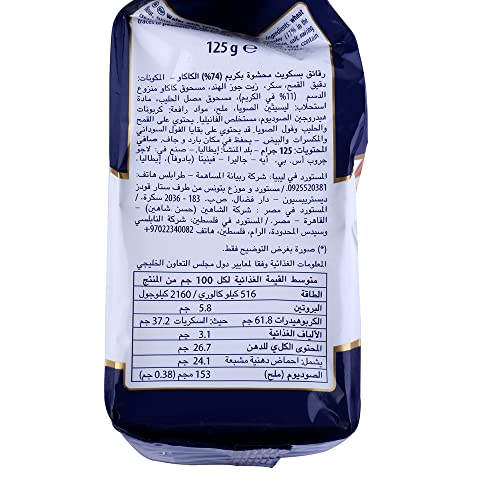 125 g e
رقائق بسكويت محشوة بكريم (74%) الكاكاو – المكونات:
دقيق القمح، سكر، زيت جوز الهند، مسحوق كاكاو منزوع
الدسم (11% في الكريم)، مسحوق مصل الحليب، مادة
استحلاب: ليسيثين الصويا، ملح، مواد رافعة: كربونات
هيدروجين الصوديوم، مستخلص الفانيليا. يحتوي على القمح
والحليب وفول الصويا. قد يحتوي على بقايا الفول السوداني
والمكسرات والبيض – يحفظ في مكان بارد و جاف. صافي
المحتويات: 125 جرام – بلد المنشأ: إيطاليا – صنع في: لاجو
جروب أس. بي. أيه – جاليرا – فينيتا (بادوفا)، إيطاليا.
المستورد في ليبيا: شركة ريبانة المساهمة – طرابلس هاتف:
0925520381. / مستورد و موزع بتونس من طرف ستار قودز
ديستريبسيون – دار فضال، ص.ب. 183 - 2036 سكرة. /
المستورد في مصر : شركة الشاهين (حسن شاهين) –
القاهرة – مصر / المستورد في فلسطين: شركة النابلسي
وسيدس المحدودة، الرام، فلسطين، هاتف 97022340082+
(*) صورة بغرض التوضيح فقط.
المعلومات الغذائية وفقا لمعايير دول مجلس التعاون الخليجي
متوسط القيمة الغذائية لكل 100 جم من المنتج
الطاقة 516 كيلو كالوري/ 2160 كيلوجول
البروتين 5.8 جم
الكربوهيدرات 61.8 جم حيث: السكريات 37.2 جم
الألياف الغذائية 3.1 جم
المحتوى الكلي للدهن 26.7 جم
يشمل: أحماض دهنية مشبعة 24.1 جم
الصوديوم (ملح) 153 مجم (0.38 جم)